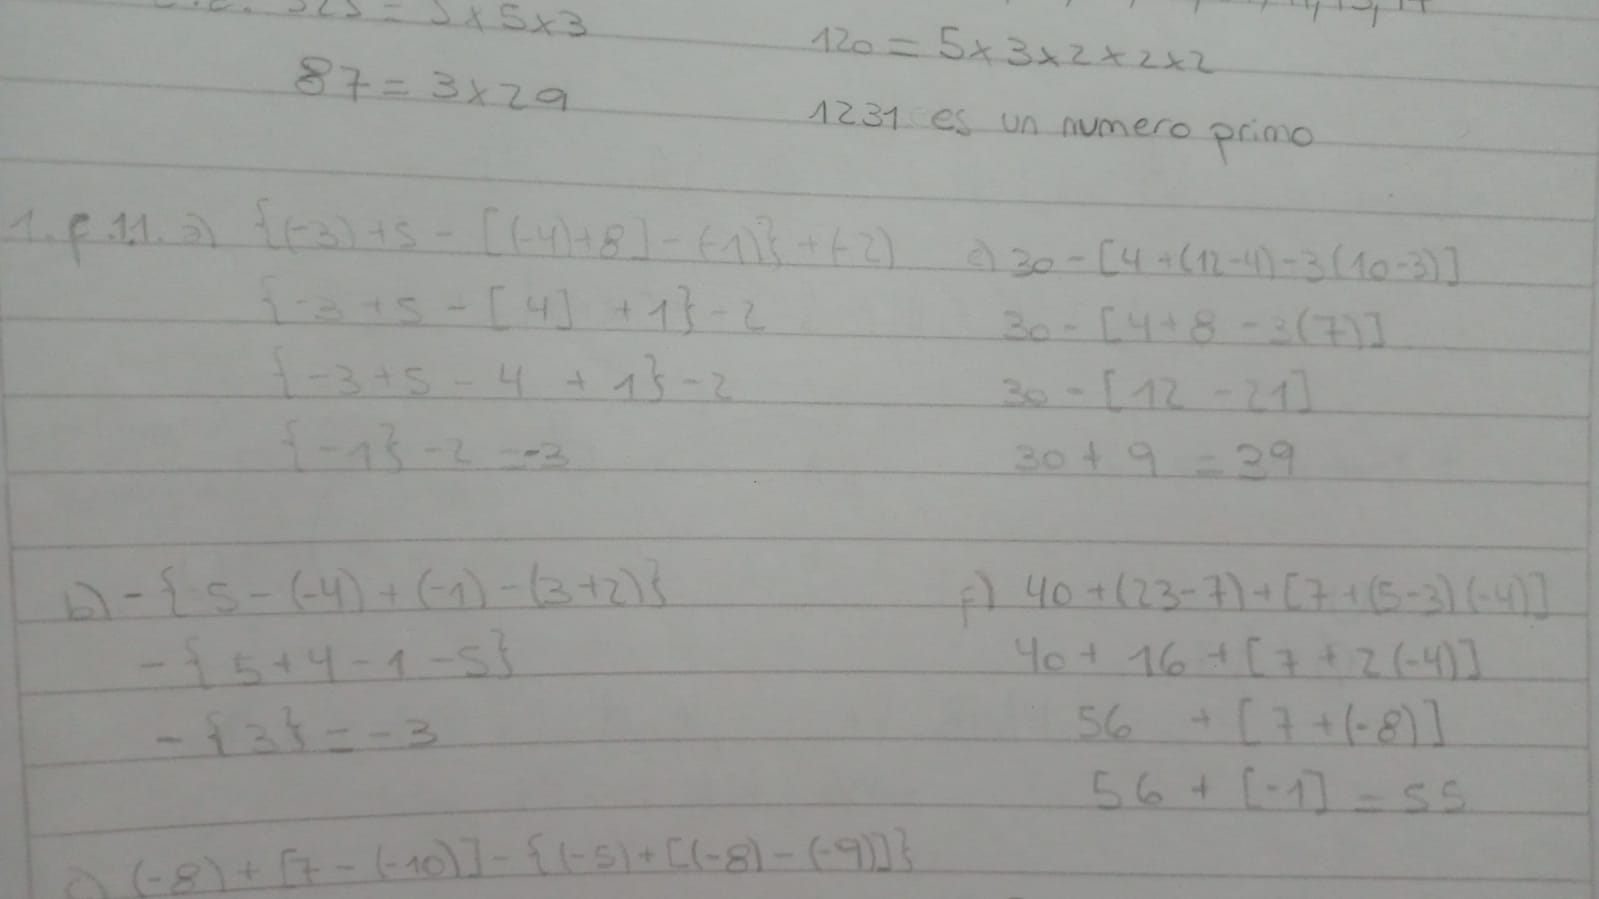 = 5 x 5 x 3
87 = 3 x 29
120 = 5 x 3 x 2 x 2 x 2
1231 es un numero primo
1. f. 11. a) {(-3) + 5 - [(-4) + 8] - (-1)} + (-2)
{-3 + 5 - [4] + 1} - 2
{-3 + 5 - 4 + 1} - 2
{-1} - 2 = -3
e) 30 - [4 + (12 - 4) - 3(10 - 3)]
30 - [4 + 8 - 3(7)]
30 - [12 - 21]
30 + 9 = 39
b) - {5 - (-4) + (-1) - (3 + 2)}
- {5 + 4 - 1 - 5}
- {3} = -3
f) 40 + (23 - 7) + [7 + (5 - 3)(-4)]
40 + 16 + [7 + 2(-4)]
56 + [7 + (-8)]
56 + [-1] = 55
c) (-8) + [7 - (-10)] - {(-5) + [(-8) - (-9)]}